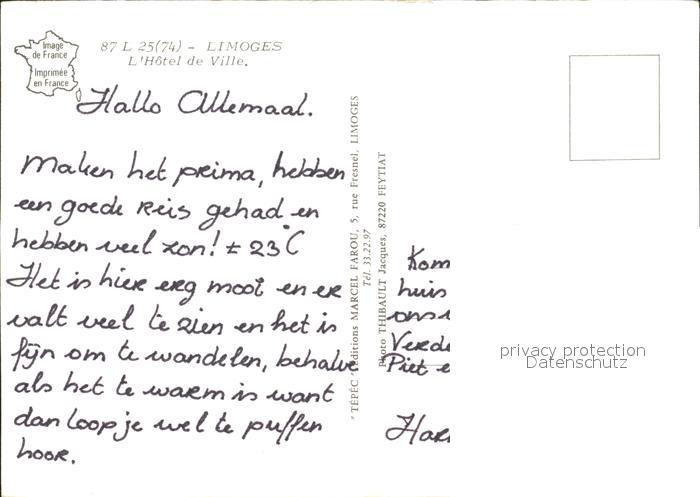 Image
de France
Imprimée
en France
87 L 25(74) - LIMOGES
L'Hôtel de Ville.
Hallo Allemaal.
Maken het prima, hebben
een goede reis gehad en
hebben veel zon! ± 23°C
Het is hier erg mooi en er
valt veel te zien en het is
fijn om te wandelen, behalve
als het te warm is want
dan loop je wel te puffen
hoor.
"TÉPÉC" éditions MARCEL FAROU, 5, rue Fresnel, LIMOGES
Tél. 33.22.97
Photo THIBAULT Jacques, 87220 FEYTIAT
Kom
huis
ons
Verde
Piet e
Har
privacy protection
Datenschutz